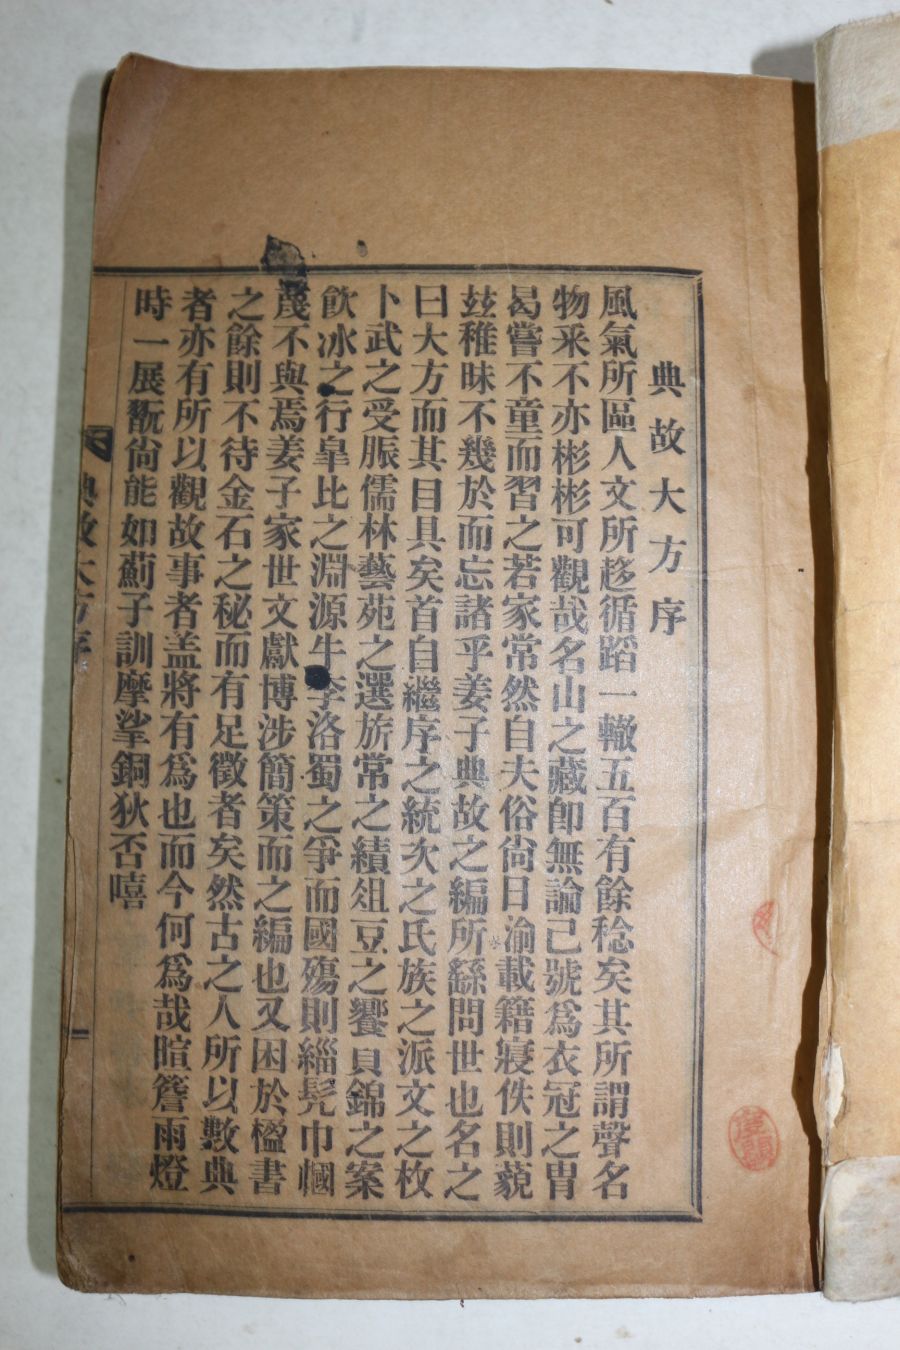 典故大方序
風氣所區人文所趍循蹈一轍五百有餘稔矣其所謂聲名
物釆不亦彬彬可觀哉名山之藏卽無論已號爲衣冠之冑
曷嘗不童而習之若家常然自夫俗尙日渝載籍寖佚則藐
玆稚昧不幾於而忘諸乎姜子典故之編所繇問世也名之
曰大方而其目具矣首自繼序之統次之氏族之派文之枚
卜武之受脤儒林藝苑之選旂常之績俎豆之饗貝錦之案
飮冰之行皐比之淵源牛李洛蜀之爭而國殤則緇髡巾幗
蔑不與焉姜子家世文獻博涉簡策而之編也又困於楹書
之餘則不待金石之秘而有足徵者矣然古之人所以數典
者亦有所以觀故事者盖將有爲也而今何爲哉暄簷雨燈
時一展翫尙能如薊子訓摩挲銅狄否嘻
典故大方序